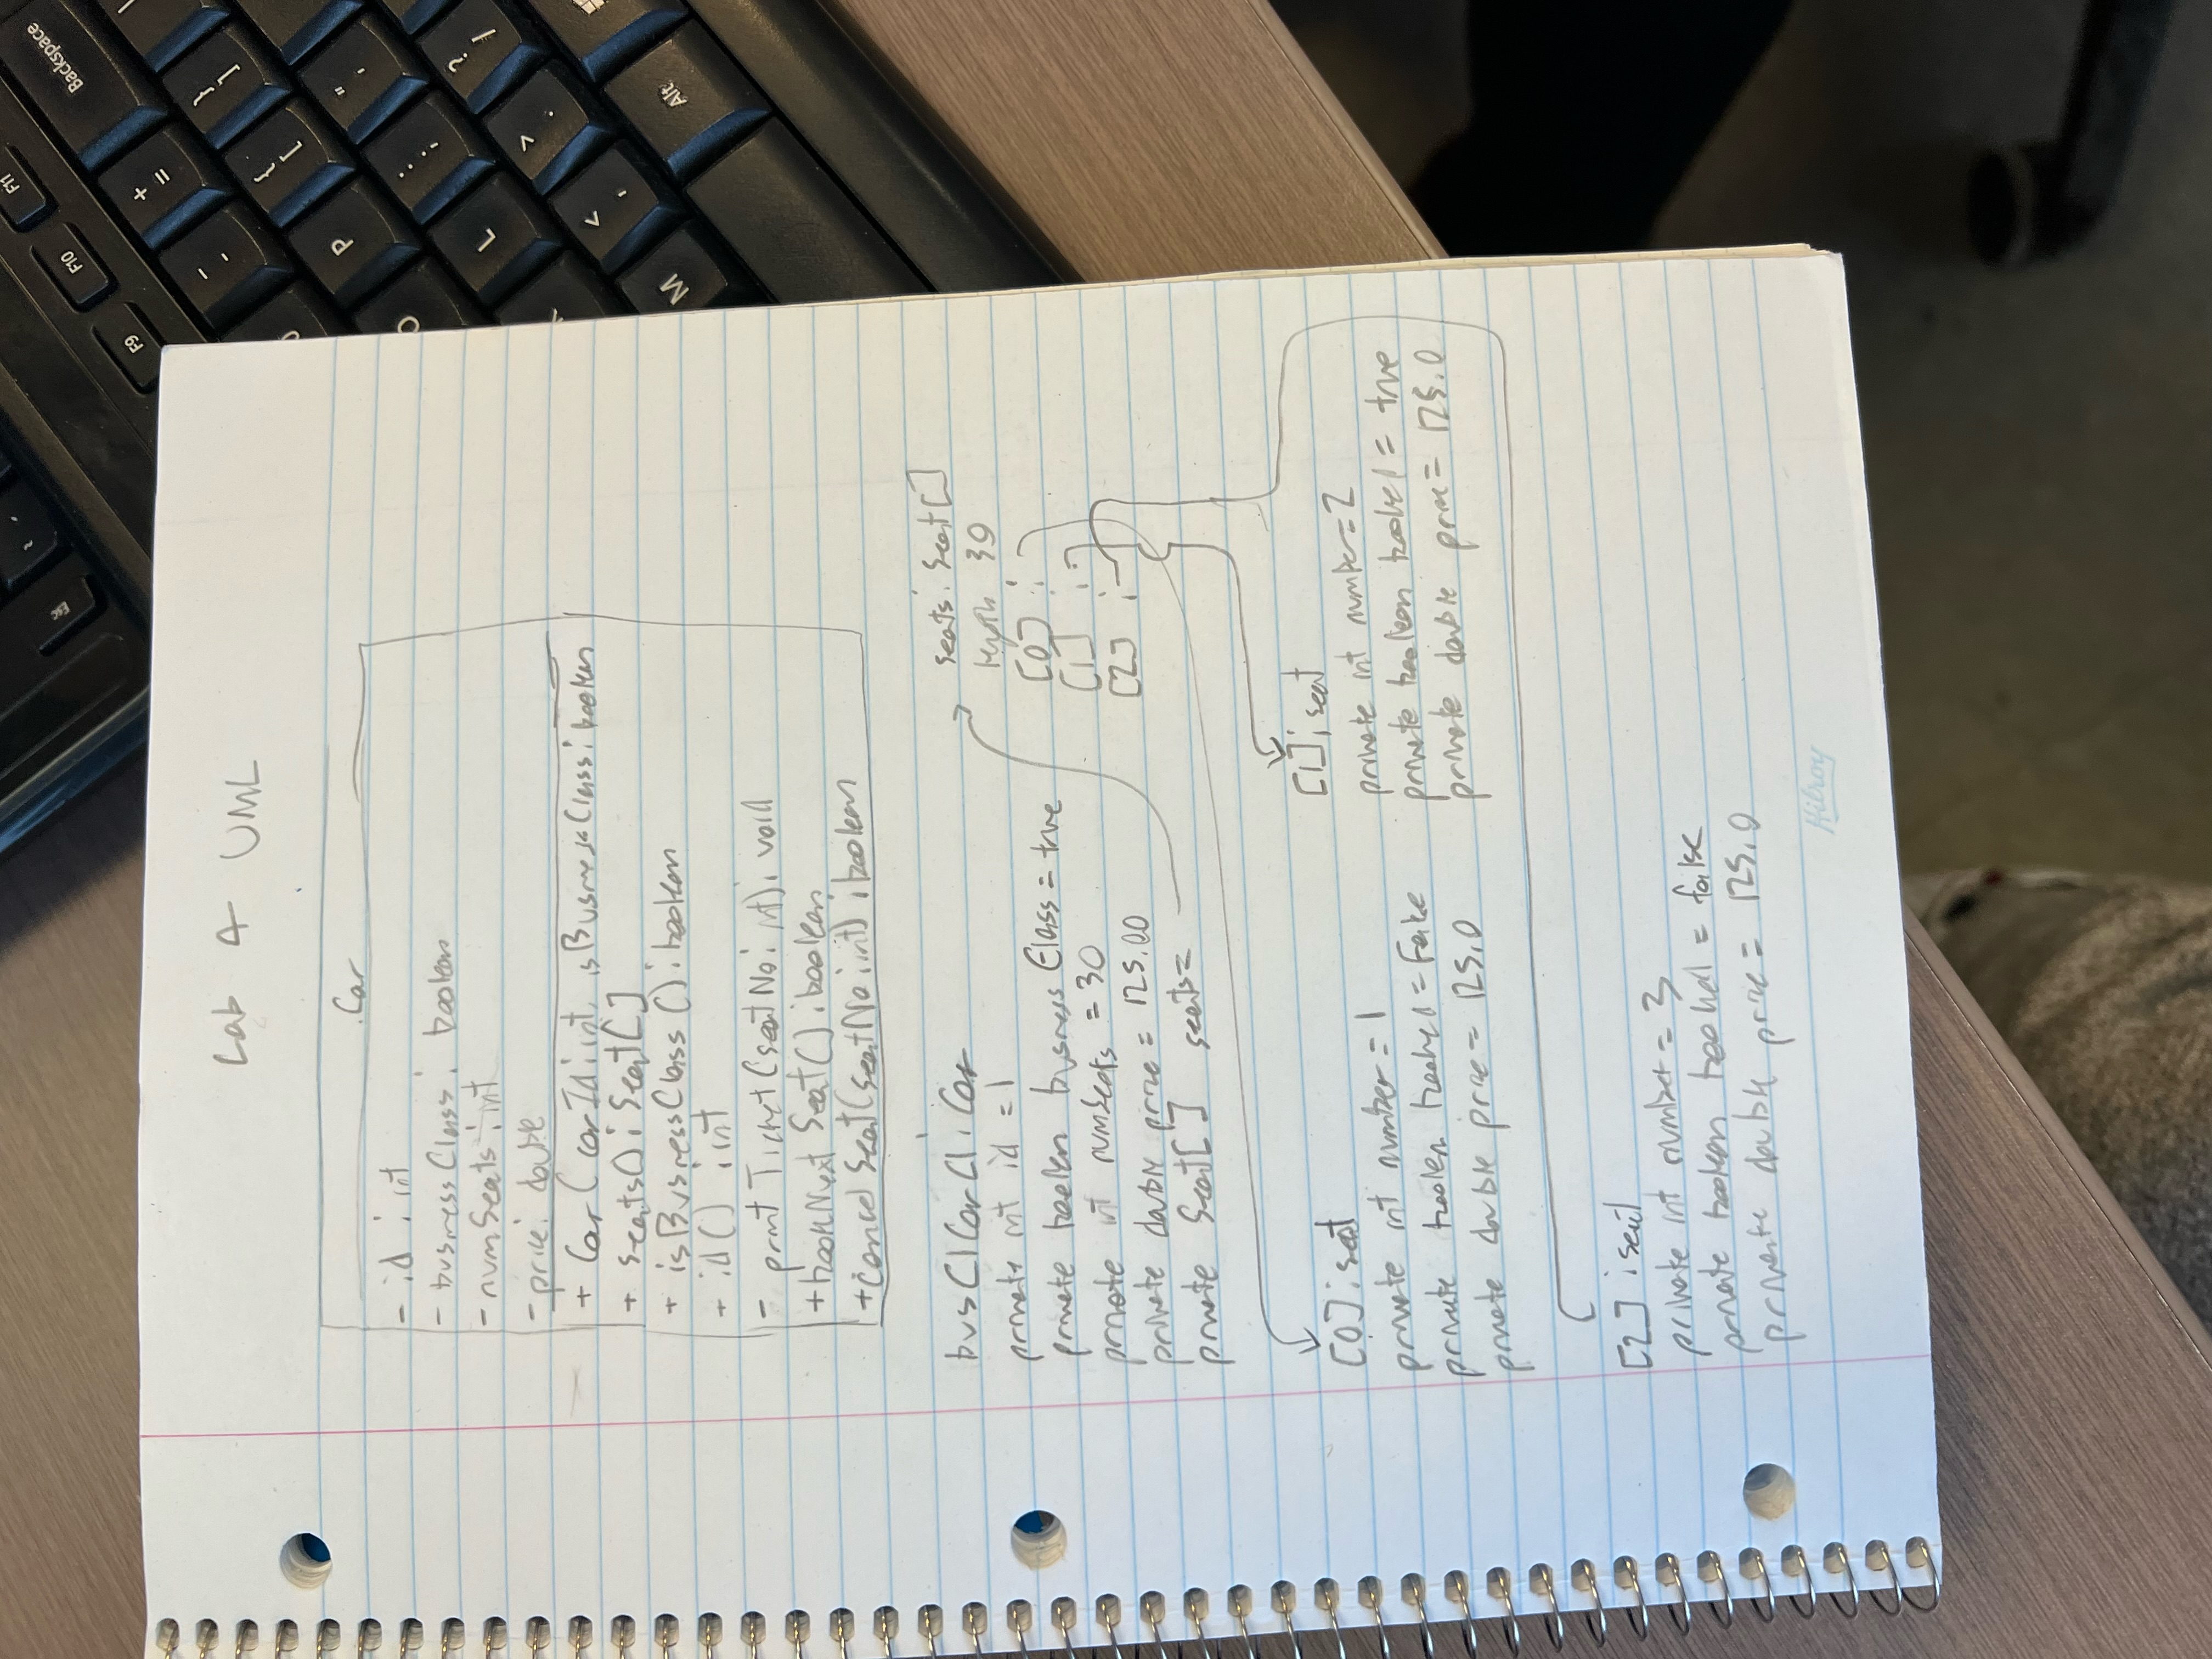 Lab 4 UML
Car
- id : int
- businessClass : boolean
- numSeats : int
- price : double
+ Car(carId : int, isBusinessClass : boolean
+ seats() : Seat[]
+ isBusinessClass() : boolean
+ id() : int
- printTicket(seatNo : int) : void
+ bookNextSeat() : boolean
+ cancelSeat(seatNo : int) : boolean
: Car
private int id = 1
private boolean businessClass = true
private int numSeats = 30
private double price = 125.00
private Seat[] seats =
seats : Seat[]
length 30
[0] :
[1] :
[2] :
[0] : seat
private int number = 1
private boolean booked = False
private double price = 125.0
[1] : seat
private int number = 2
private boolean booked = true
private double price = 125.0
[2] : seat
private int number = 3
private boolean booked = false
private double price = 125.0
Hilroy
Esc
~
`
F9
F10
F11
Backspace
+
=
-
}
]
{
[
P
"
'
:
;
L
?
/
>
.
<
,
M
Alt